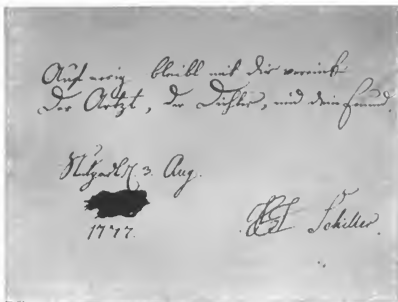 Auf ewig bleibt mit dir vereint
Der Artzt, der Dichter, und dein Freund.
Stutgardt 3. Aug.
1777.
Schiller.